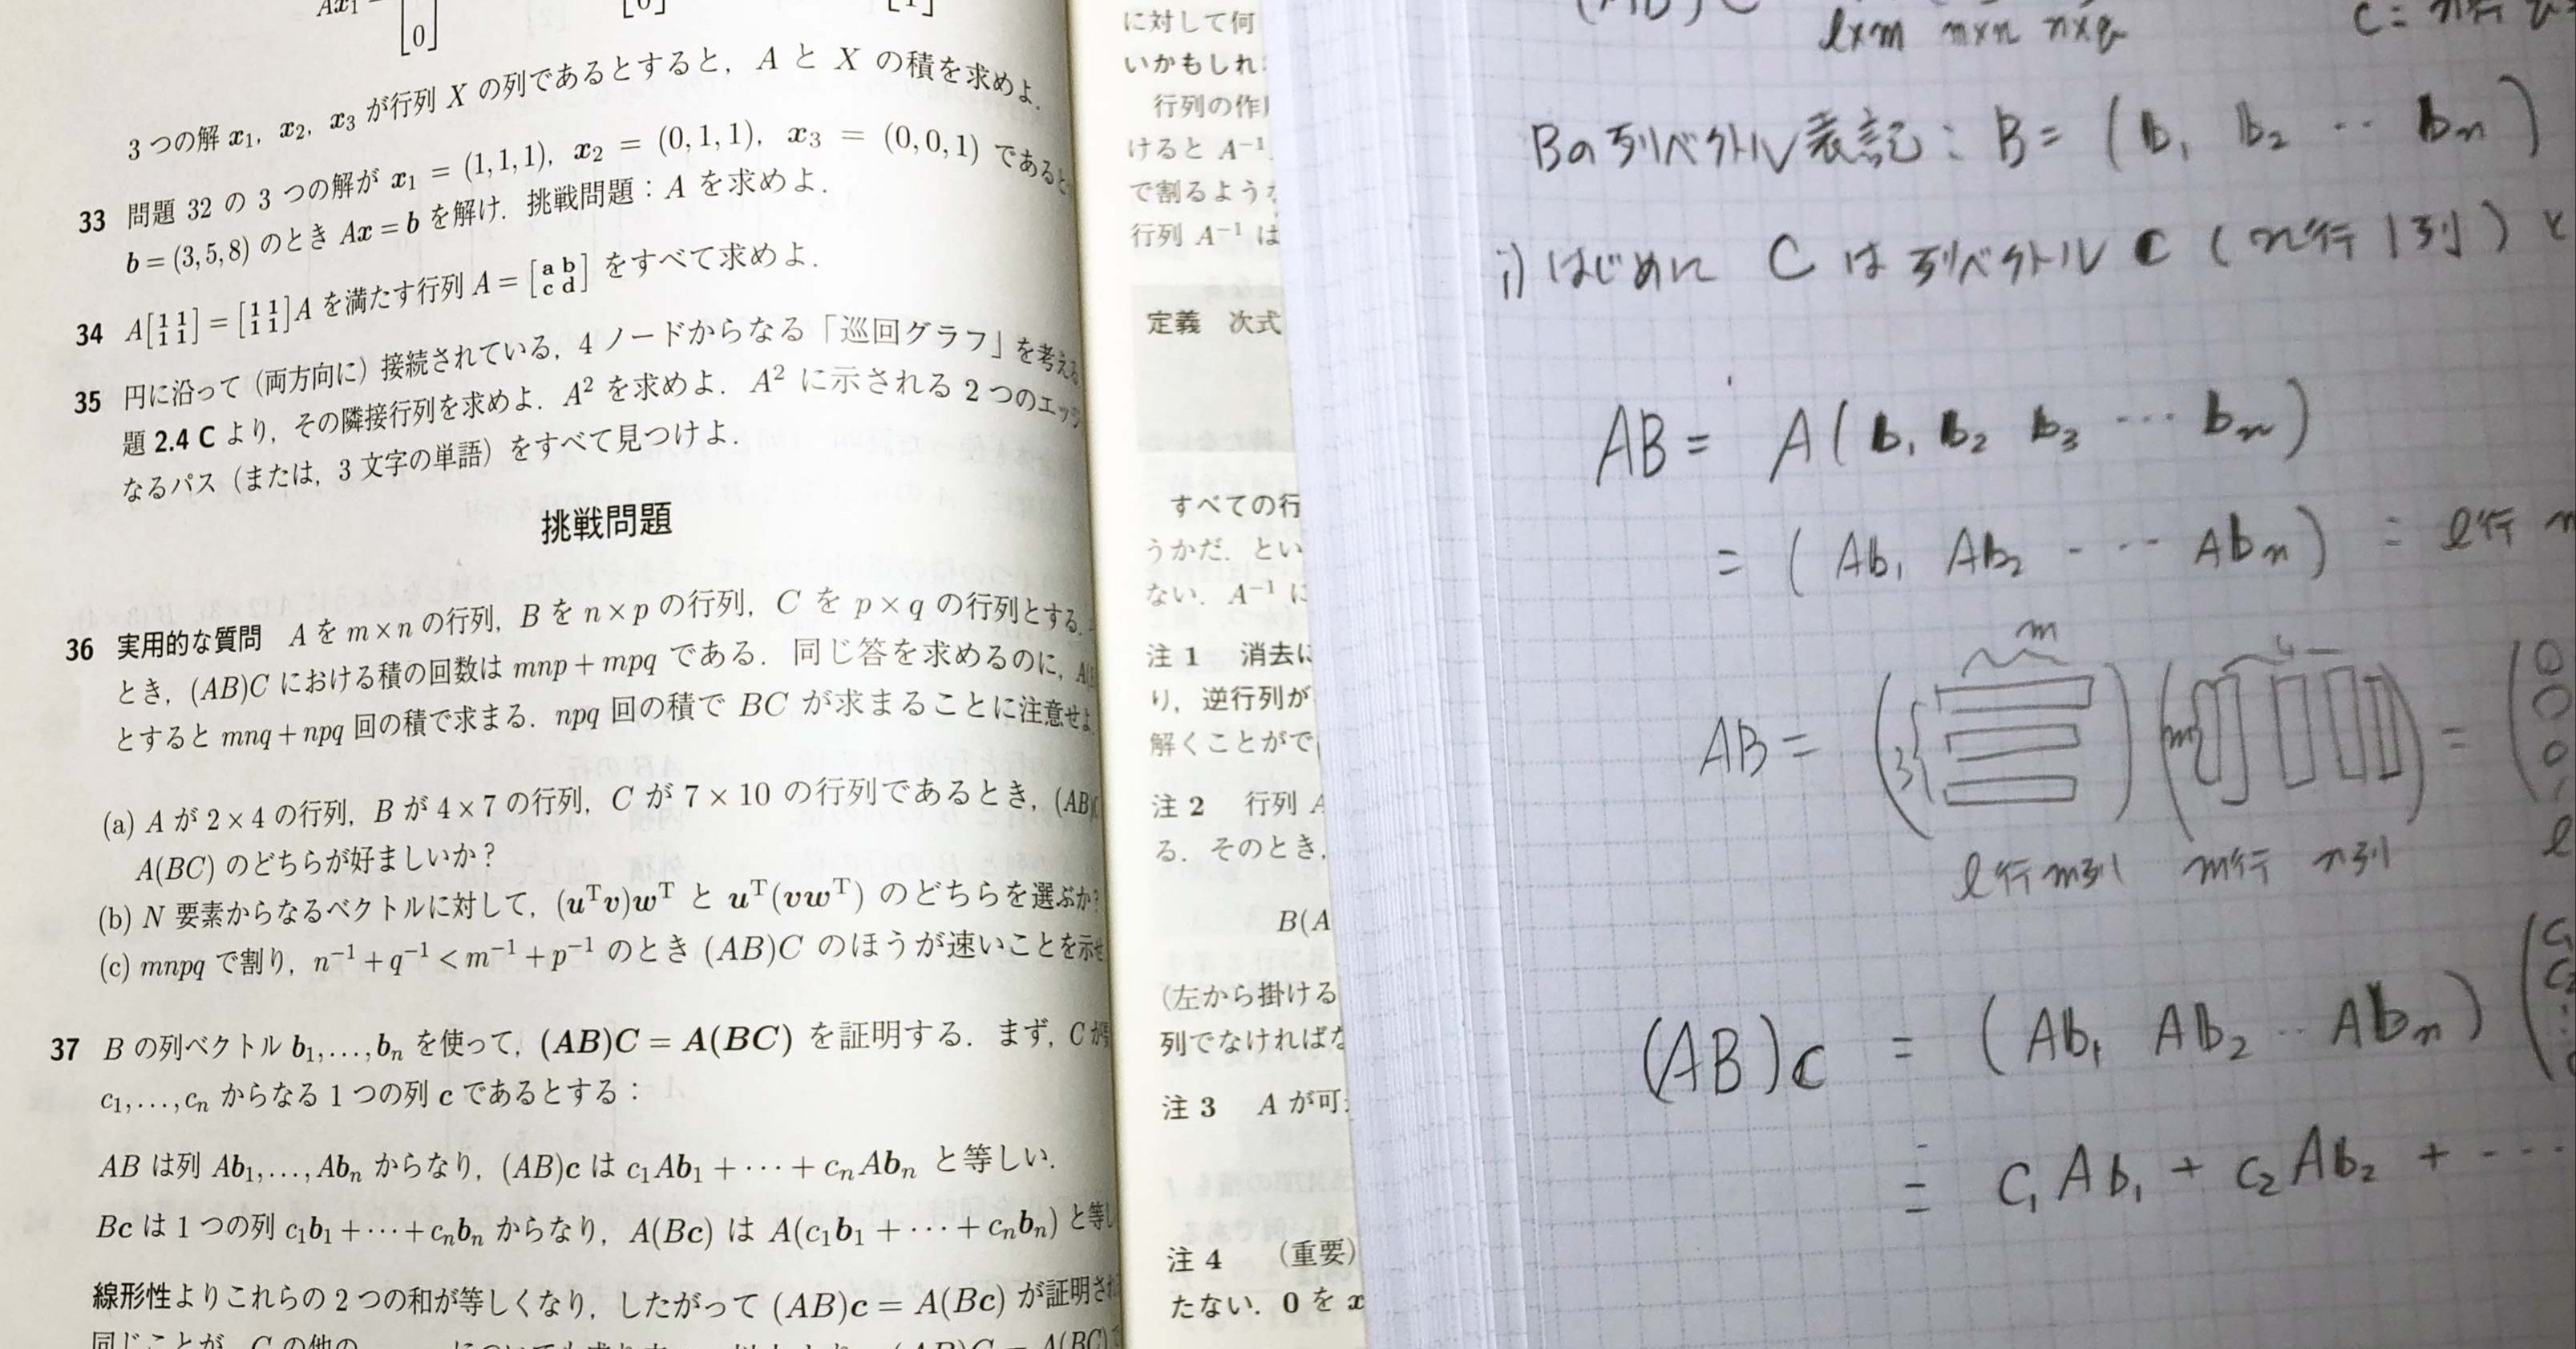 Ax₁ = [0] [0] [1]
3つの解 x₁, x₂, x₃ が行列 X の列であるとすると, A と X の積を求めよ.
33 問題 32 の 3 つの解が x₁ = (1,1,1), x₂ = (0,1,1), x₃ = (0,0,1) であると
b = (3,5,8) のとき Ax = b を解け. 挑戦問題：A を求めよ.
34 A[1 1; 1 1] = [1 1; 1 1]A を満たす行列 A = [a b; c d] をすべて求めよ.
35 円に沿って（両方向に）接続されている, 4 ノードからなる「巡回グラフ」を考える
題 2.4 C より, その隣接行列を求めよ. A² を求めよ. A² に示される 2 つのエッジ
なるパス（または, 3 文字の単語）をすべて見つけよ.
挑戦問題
36 実用的な質問 A を m×n の行列, B を n×p の行列, C を p×q の行列とする.
とき, (AB)C における積の回数は mnp + mpq である. 同じ答を求めるのに,
とすると mnq + npq 回の積で求まる. npq 回の積で BC が求まることに注意せよ
(a) A が 2×4 の行列, B が 4×7 の行列, C が 7×10 の行列であるとき, (AB)
A(BC) のどちらが好ましいか？
(b) N 要素からなるベクトルに対して, (uᵀv)wᵀ と uᵀ(vwᵀ) のどちらを選ぶか?
(c) mnpq で割り, n⁻¹ + q⁻¹ < m⁻¹ + p⁻¹ のとき (AB)C のほうが速いことを示せ
37 B の列ベクトル b₁,…,bₙ を使って, (AB)C = A(BC) を証明する. まず, C が
c₁,…,cₙ からなる 1 つの列 c であるとする：
AB は列 Ab₁,…,Abₙ からなり, (AB)c は c₁Ab₁ + ⋯ + cₙAbₙ と等しい.
Bc は 1 つの列 c₁b₁ + ⋯ + cₙbₙ からなり, A(Bc) は A(c₁b₁ + ⋯ + cₙbₙ) と等し
線形性よりこれらの 2 つの和が等しくなり, したがって (AB)c = A(Bc) が証明され
同じことが, C の他の
に対して何
いかもしれ
行列の作
けると A⁻¹
で割るような
行列 A⁻¹ は
定義 次式
すべての行
うかだ. とい
ない. A⁻¹ に
注 1 消去に
り, 逆行列が
解くことがで
注 2 行列 A
る. そのとき,
B(A
(左から掛ける
列でなければな
注 3 A が可
注 4 （重要）
たない. 0 を x
(AB)C
l×m m×n n×q
C = n行
Bの列ベクトル表記: B = (b₁ b₂ ‥ bₙ)
i) はじめに C は 列ベクトル c (n行1列) と
AB = A(b₁ b₂ b₃ … bₙ)
= (Ab₁ Ab₂ - … Abₙ) = l行
m
AB =
=
l行m列 m行 n列
(AB)c = (Ab₁ Ab₂ ‥ Abₙ)
= c₁Ab₁ + c₂Ab₂ + - …